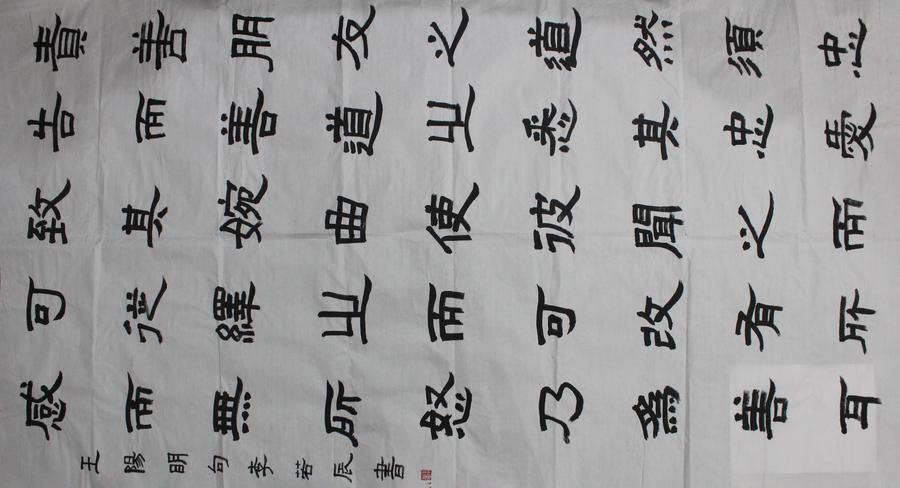 責善朋友之道然須忠
告而善道之悉其忠愛
致其婉曲使彼聞之而
可從繹之而可改有所
感而無所怒乃爲善耳
王陽明句李若辰書